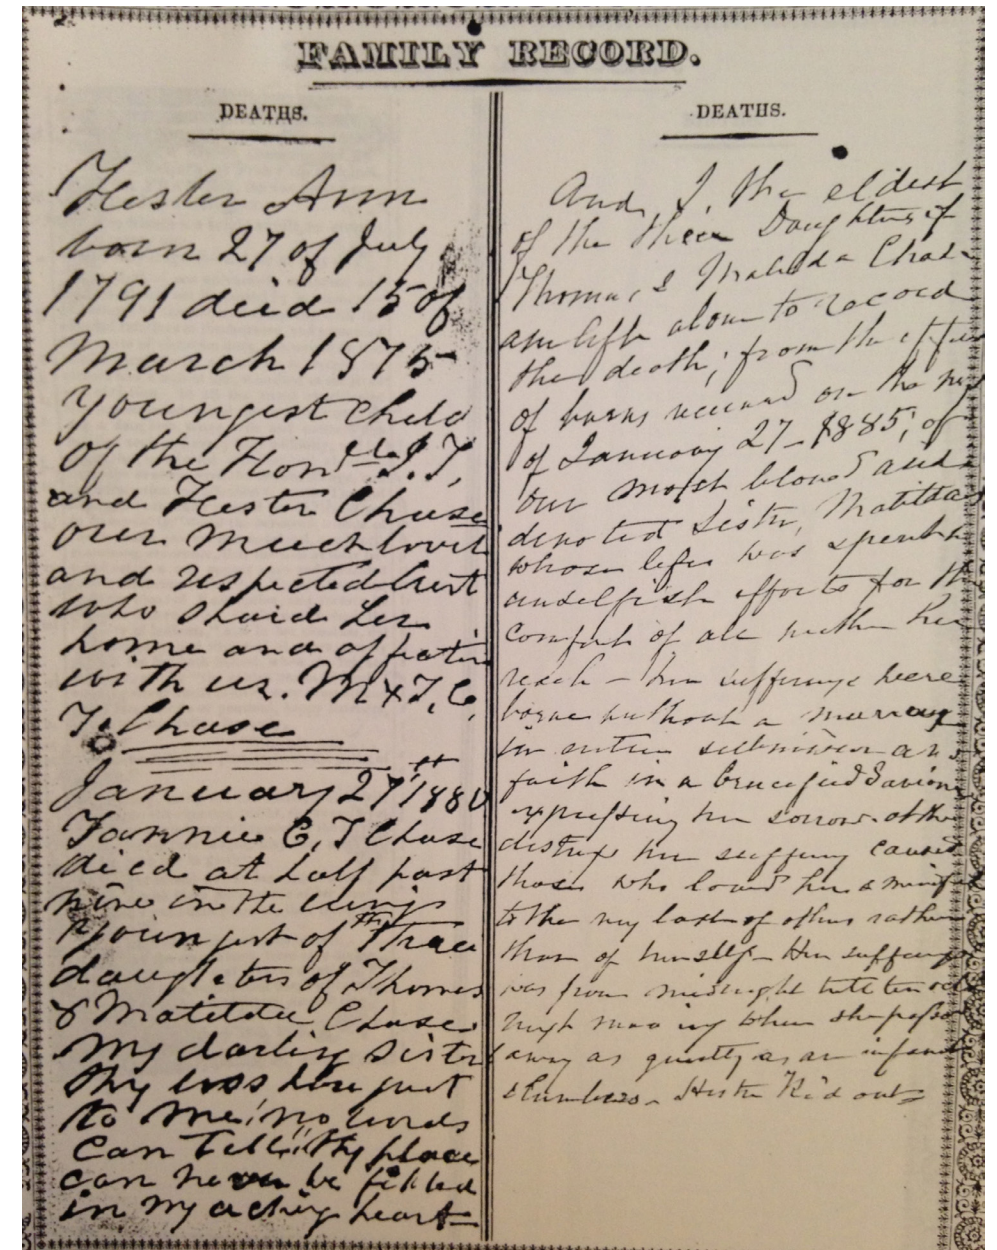 FAMILY RECORD.
DEATHS.
Hester Ann
born 27 of July
1791 died 15 of
March 1875
youngest child
of the Honble J. T.
and Hester Chase
our much loved
and respected Aunt
who shared her
home and affection
with us. M & F, C,
T. Chase
January 27th 1880
Fannie C. T Chase
died at half past
nine in the evening
youngest of the Three
daughters of Thomas
& Matilda Chase
My darling Sister
thy loss here just
to me, no words
can Tell, thy place
can never be filled
in my aching heart
DEATHS.
And, I, the eldest
of the three Daughters of
Thomas & Matilda Chase
am left alone to record
the death, from the effects
of burns received on the
of January 27 - 1885, of
our most loved and
devoted Sister, Matilda
whose life was spent in
unselfish efforts for the
comfort of all within her
reach - her sufferings were
borne without a murmur
in entire submission and
faith in a Crucified Saviour
expressing her sorrow at the
distress her suffering caused
those who loved her &
to the very last of others rather
than of herself - Her suffering
was from midnight till ten
when she passed
away as quietly as an infant
slumbers - Hester Ridout